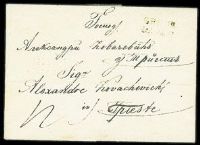 Господ.
Александри Ковачевићъ
у Триесту
Sigr
Alexandre Kovachevich
in/ Trieste